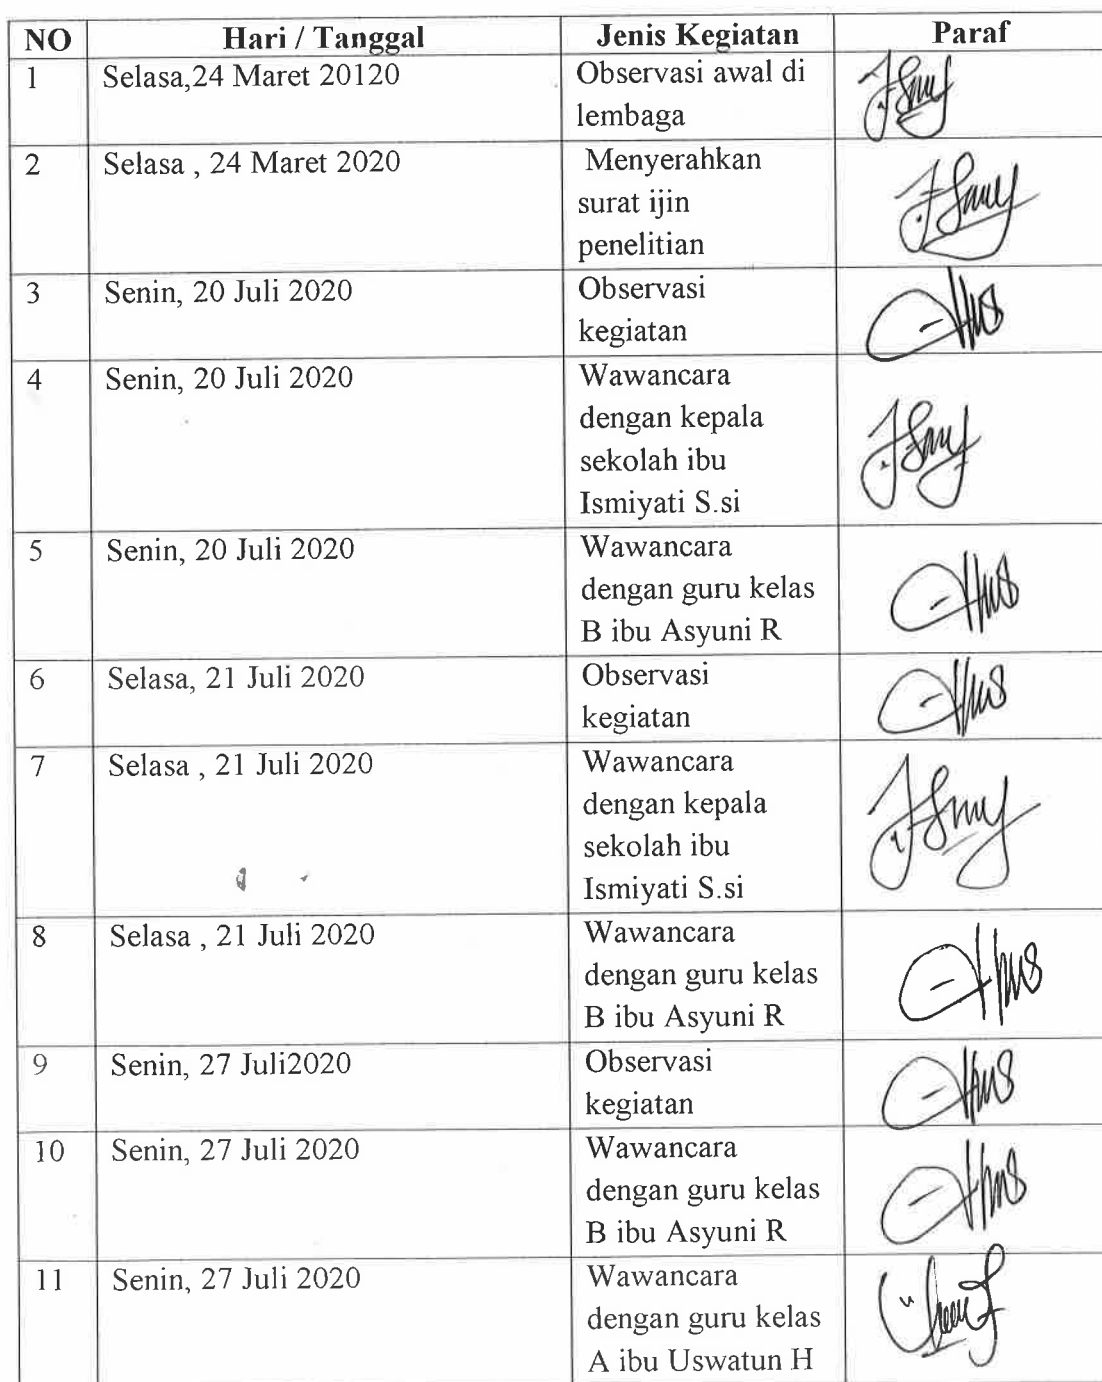 NO Hari / Tanggal Jenis Kegiatan Paraf
1 Selasa,24 Maret 20120 Observasi awal di
lembaga
2 Selasa , 24 Maret 2020 Menyerahkan
surat ijin
penelitian
3 Senin, 20 Juli 2020 Observasi
kegiatan
4 Senin, 20 Juli 2020 Wawancara
dengan kepala
sekolah ibu
Ismiyati S.si
5 Senin, 20 Juli 2020 Wawancara
dengan guru kelas
B ibu Asyuni R
6 Selasa, 21 Juli 2020 Observasi
kegiatan
7 Selasa , 21 Juli 2020 Wawancara
dengan kepala
sekolah ibu
Ismiyati S.si
8 Selasa , 21 Juli 2020 Wawancara
dengan guru kelas
B ibu Asyuni R
9 Senin, 27 Juli2020 Observasi
kegiatan
10 Senin, 27 Juli 2020 Wawancara
dengan guru kelas
B ibu Asyuni R
11 Senin, 27 Juli 2020 Wawancara
dengan guru kelas
A ibu Uswatun H